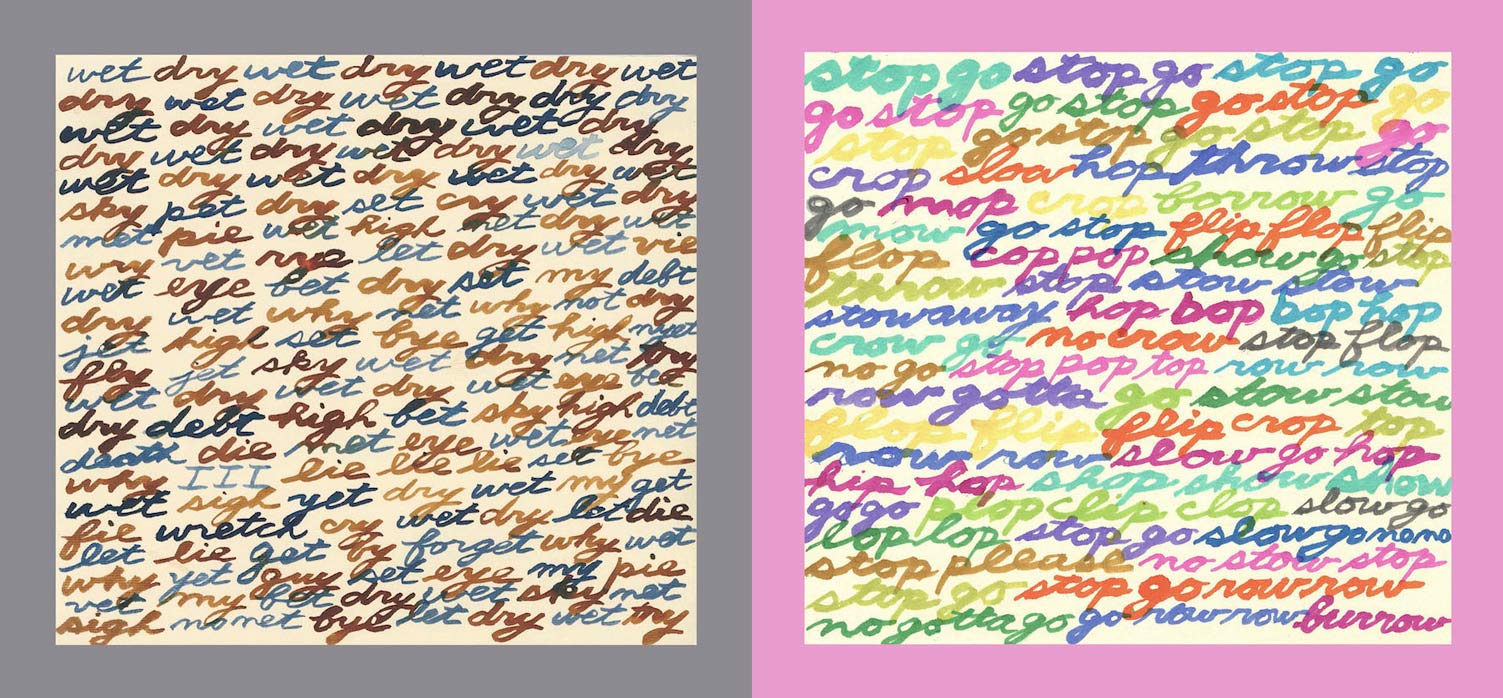 wet dry wet dry wet dry wet
dry wet dry wet dry dry dry
wet dry wet dry wet dry
dry wet dry wet dry wet
wet dry wet dry wet dry wet
sky pet dry set cry wet dry
met pie wet high net dry wet
wry vet rye let dry wet vie
wet eye bet dry set my debt
dry wet why met why not dry
jet high set bye get high net
fly jet sky wet dry met try
wet dry wet dry wet eye bet
dry debt high bet sky high debt
death die met eye wet eye net
why III lie lie lie set bye
wet sigh yet dry wet my get
fie wretch cry wet dry let die
let lie get by forget why wet
why yet guy set eye my pie
vet my bet dry wet sky net
sigh no net bye let dry wet try
stop go stop go stop go
go stop go stop go stop go
stop go stop go stop go
crop slow hop throw stop
go mop crop borrow go
mow go stop flip flop flip
flop cop pop show go stop
throw stop stow stow
stowaway hop bop bop hop
crow go no crow stop flop
no go stop pop top row row
row gotta go stow stow
flop flip flip crop top
row row slow go hop
hip hop shop show show
go go plop clip clop slow go
lop lop stop go slow go no no
stop please no stow stop
stop go stop go row row
no gotta go go row row burrow